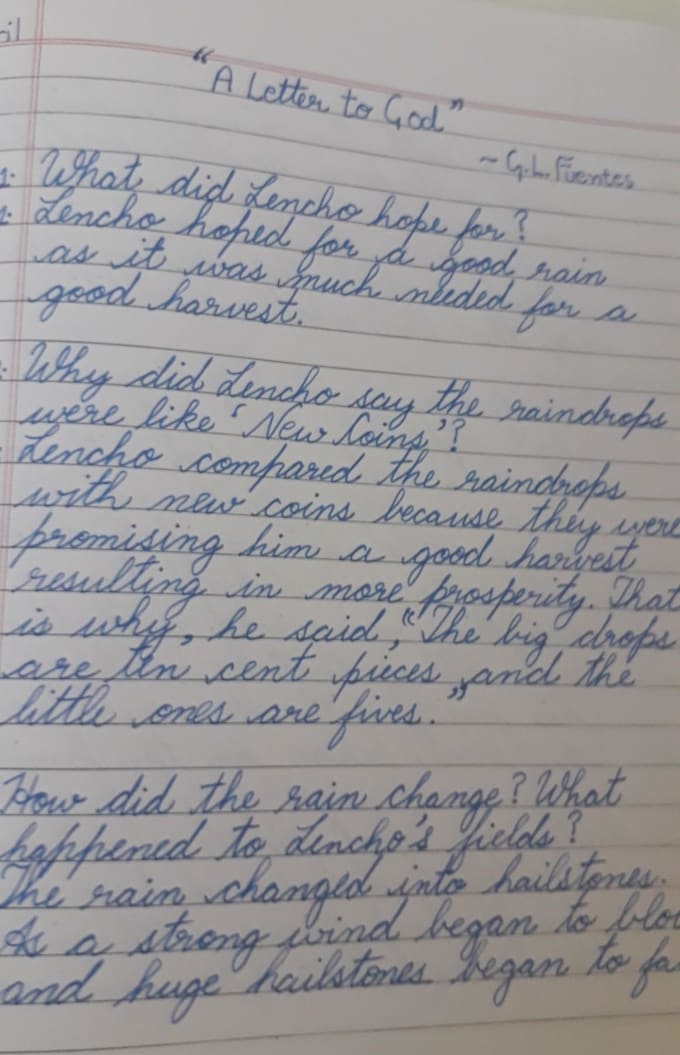 il
"A Letter to God"
~ G.L. Fuentes
1. What did Lencho hope for?
Lencho hoped for a good rain
as it was much needed for a
good harvest.
Why did Lencho say the raindrops
were like 'New Coins'?
Lencho compared the raindrops
with new coins because they were
promising him a good harvest
resulting in more prosperity. That
is why, he said, "The big drops
are ten cent pieces and the
little ones are fives."
How did the rain change? What
happened to Lencho's fields?
The rain changed into hailstones.
As a strong wind began to blow
and huge hailstones began to fa